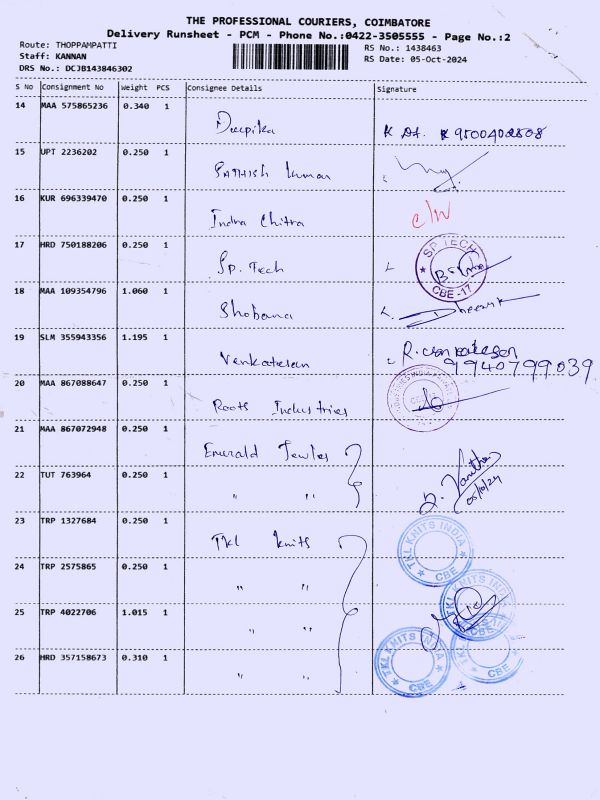 THE PROFESSIONAL COURIERS, COIMBATORE
Delivery Runsheet - PCM - Phone No.:0422-3505555 - Page No.:2
Route: THOPPAMPATTI RS No.: 1438463
Staff: KANNAN RS Date: 05-Oct-2024
DRS No.: DCJB143846302
S No Consignment No Weight PCS Consignee Details Signature
14 MAA 575865236 0.340 1
Deepika
15 UPT 2236202 0.250 1
Sathish Kumar
16 KUR 696339470 0.250 1
Indra Chitra C/W
17 HRD 750188206 0.250 1
SP. Tech SP TECH CBE-17
18 MAA 109354796 1.060 1
Shobana
19 SLM 355943356 1.195 1
Venkatesan
9940799039
20 MAA 867088647 0.250 1
Roots Industries
21 MAA 867072948 0.250 1
Emerald Jewles
22 TUT 763964 0.250 1
" " 05/10/24
23 TRP 1327684 0.250 1
TKL Knits TKL KNITS INDIA CBE
24 TRP 2575865 0.250 1
" " TKL KNITS INDIA CBE
25 TRP 4022706 1.015 1
" "
26 HRD 357158673 0.310 1
" " TKL KNITS INDIA CBE